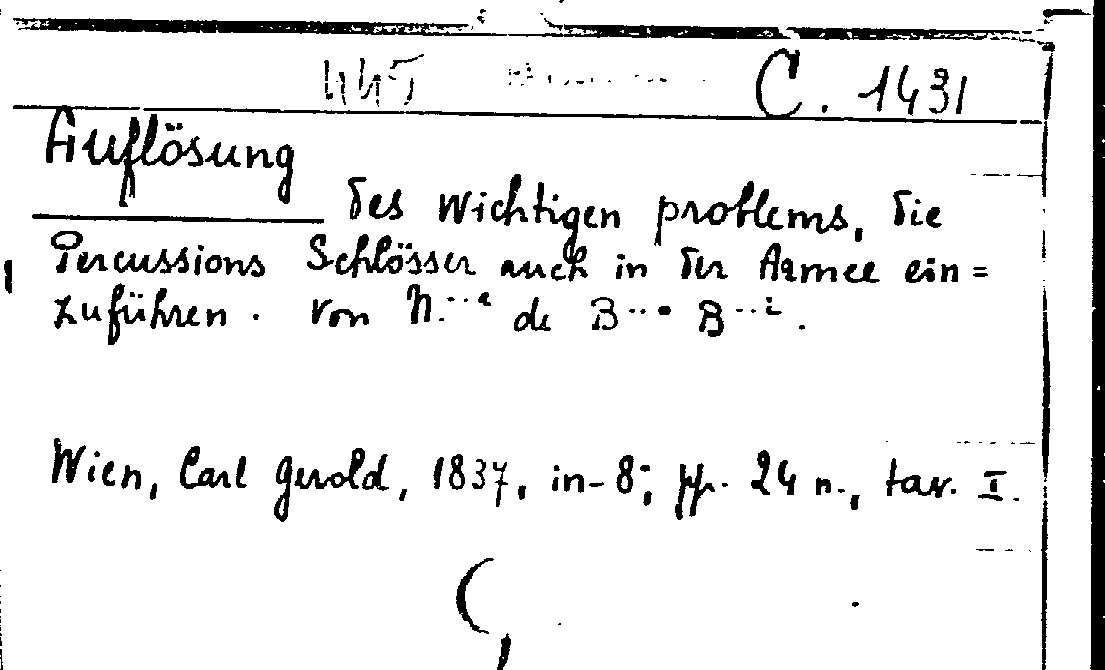 445 C. 1431
Auflösung
des wichtigen problems, die
Percussions Schlösser auch in der Armee ein=
zuführen. von N...e de B... B...i.
Wien, Carl Gerold, 1837, in-8°; pp. 24 n., tav. I.